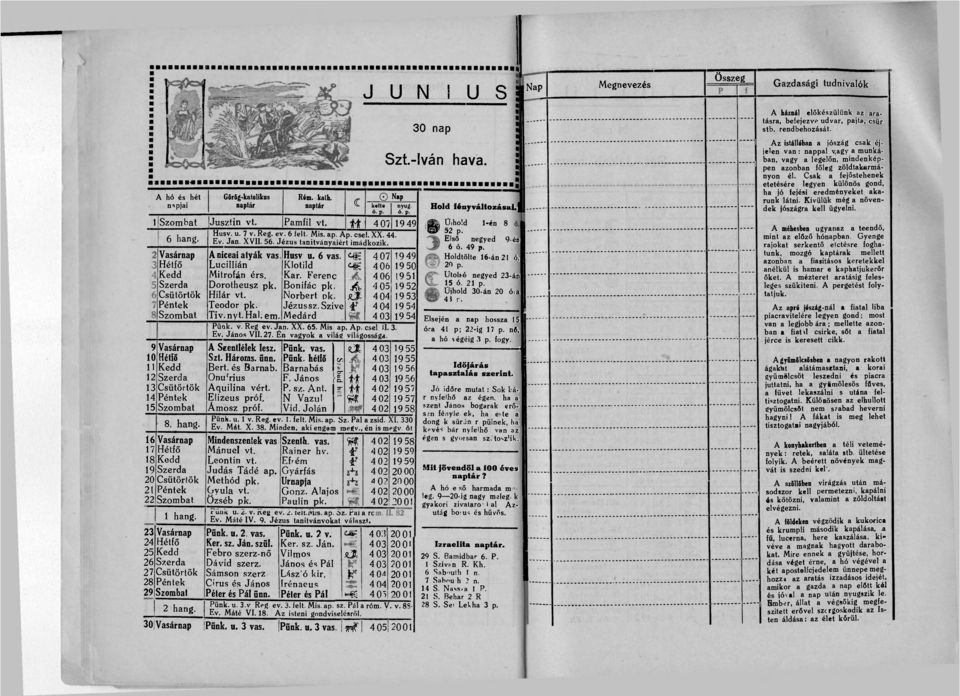 JUNIUS
30 nap
Szt.-Iván hava.
A hó és hét napjai Görög-katolikus naptár Róm. kath. naptár ☾ ☉ Nap kelte ó. p. nyug. ó. p.
1 Szombat Jusztin vt. Pamfil vt. 4 07 19 49
6 hang. Husv. u. 7 v. Reg. ev. 6 felt. Mis. ap. Ap. csel. XX. 44.
Ev. Jan. XVII. 56. Jézus tanitványaiért imádkozik.
2 Vasárnap A niceai atyák vas. Husv u. 6 vas. 4 07 19 49
3 Hétfő Lucillián Klotild 4 06 19 50
4 Kedd Mitrofán érs. Kar. Ferenc 4 06 19 51
5 Szerda Dorotheusz pk. Bonifác pk. 4 05 19 52
6 Csütörtök Hilár vt. Norbert pk. 4 04 19 53
7 Péntek Teodor pk. Jézus sz. Szive 4 04 19 54
8 Szombat Tiv. nyt. Hal. em. Medárd 4 03 19 54
Pünk. v. Reg ev. Jan. XX. 65. Mis ap. Ap. csel II. 3.
Ev. János VII. 27. Én vagyok a világ világossága.
9 Vasárnap A Szentlélek lesz. Pünk. vas. 4 03 19 55
10 Hétfő Szt. Hároms. ünn. Pünk. hétfő 4 03 19 55
11 Kedd Bert. és Barnab. Barnabás 4 03 19 56
12 Szerda Onufrius F. János 4 03 19 56
13 Csütörtök Aquilina vért. P. sz. Ant. 4 02 19 57
14 Péntek Elizeus próf. N Vazul 4 02 19 57
15 Szombat Ámosz próf. Vid. Jolán 4 02 19 58
8. hang. Pünk. u. 1 v. Reg. ev. 1. felt. Mis. ap. Sz. Pál a zsid. XI. 330
Ev. Mát. X. 38. Minden, aki engem megv., én is megv. őt
16 Vasárnap Mindenszentek vas Szenth. vas. 4 02 19 58
17 Hétfő Mánuel vt. Rainer hv. 4 02 19 59
18 Kedd Leontin vt. Efrém 4 02 19 59
19 Szerda Judás Tádé ap. Gyárfás 4 02 20 00
20 Csütörtök Methód pk. Urnapja 4 02 20 00
21 Péntek Gyula vt. Gonz. Alajos 4 02 20 00
22 Szombat Özséb pk. Paulin pk. 4 02 20 01
1 hang. Pünk u. 2. v. Reg ev. 2. felt. Mis. ap. Sz. Pál a rom. II. 82
Ev. Máté IV. 9. Jézus tanitványokat választ.
23 Vasárnap Pünk. u. 2. vas. Pünk. u. 2 v. 4 03 20 01
24 Hétfő Ker. sz. Ján. szül. Ker. sz. Ján. 4 03 20 01
25 Kedd Febro szerz-nő Vilmos 4 03 20 01
26 Szerda Dávid szerz. János és Pál 4 03 20 01
27 Csütörtök Sámson szerz László kir. 4 04 20 01
28 Péntek Cirus és János Iréneaus 4 04 20 01
29 Szombat Péter és Pál ünn. Péter és Pál 4 05 20 01
2 hang. Pünk. u. 3. v Reg ev. 3. felt. Mis. ap. sz. Pál a róm. V. v. 88-
Ev. Máté VI. 18. Az isteni gondviselésről.
30 Vasárnap Pünk. u. 3 vas. Pünk. u. 3 vas. 4 05 20 01
Hold fényváltozásai.
Ujhold 1-én 8 ó.
52 p.
Első negyed 9-én
6 ó. 49 p.
Holdtölte 16-án 21 ó.
20 p.
Utolsó negyed 23-án
15 ó. 21 p.
Ujhold 30-án 20 óra
43 p.
Elsején a nap hossza 15
óra 41 p; 22-ig 17 p. nő,
a hó végéig 3 p. fogy.
Időjárás
tapasztalás szerint.
Jó időre mutat: Sok bá-
r nyfelhő az égen, ha a
szent János bogarak erő-
sen fényle ek, ha este a
dong k sűrűn r pülnek, ha
kevés bár nyfelhő van az
égen s gyorsan sz. toszlik.
Mit jövendöl a 100 éves
naptár?
A hó e ső harmada me-
leg, 9—20-ig nagy meleg, k
gyakori zivatarokkal Az-
utág borus és hűvös.
Izraelita naptár.
29 S. Bamidbar 6. P.
1 Szivan R. Kh.
6 Sabouth 1 n.
7 Sabouh 2 n.
14 S. Nassza 1 P.
21 S. Behar 2 R
28 S. Sel Lekha 3 p.
Nap Megnevezés Összeg P f Gazdasági tudnivalók
A háznál előkészülünk az ara-
tásra, befejezve udvar, pajta, csür
stb. rendbehozását.
Az istállóban a jószág csak éj-
jelen van: nappal vagy a munká-
ban, vagy a legelőn, mindenkép-
pen azonban főleg zöldtakarmá-
nyon él. Csak a fejőstehenek
etetésére legyen különös gond,
ha jó fejési eredményeket aka-
runk látni. Kivülük még a növen-
dék jószágra kell ügyelni.
A méhesben ugyanaz a teendő,
mint az előző hónapban. Gyenge
rajokat serkentő etetésre foghat-
tunk, mozgó kaptárak mellett
azonban a fiasításos keretekkel
anélkül is hamar e kaphatjukerőr
őket. A mézteret aratásig feles-
leges szűkíteni. A pergetést foly-
tatjuk.
Az apró jószág-nál a fiatal liba
piacravitelére legyen gond; most
van a legjobb ára; mellette azon-
ban a fiatal csirke, sőt a fiatal
jérce is keresett cikk.
A gyümölcsösben a nagyon rakott
ágakat alátámasztani, a korai
gyümölcsöt leszedni és piacra
juttatni, ha a gyümölcsös füves,
a füvet lekaszálni s utána fel-
tisztogatni. Különösen az elhullott
gyümölcsöt nem szabad heverni
hagyni! A fákat is meg lehet
tisztogatni nagyjából.
A konyhakertben a téli vetemé-
nyek: retek, saláta stb. ültetése
folyik. A beérett növények mag-
vát is szedni kel'.
A szőllőben virágzás után má-
sodszor kell permetezni, kapálni
és kötözni, valamint a zöldoltást
elvégezni.
A földeken végződik a kukorica
és krumpli második kapálása, a
fű, lucerna, here kaszálása, ki-
véve a magnak hagyott darabo-
kat. Mire ennek a gyüjtése, hor-
dása véget érne, a hó végével a
két apostolfejedelem ünnepe meg-
hozza az aratás izzadásos idejét,
amikor a gazda a nap előtt kél
és jóval a nap után nyugszik le.
Ember, állat a végsőkig megfe-
szített erővel szorgoskodik az Is-
ten áldása: az élet körül.